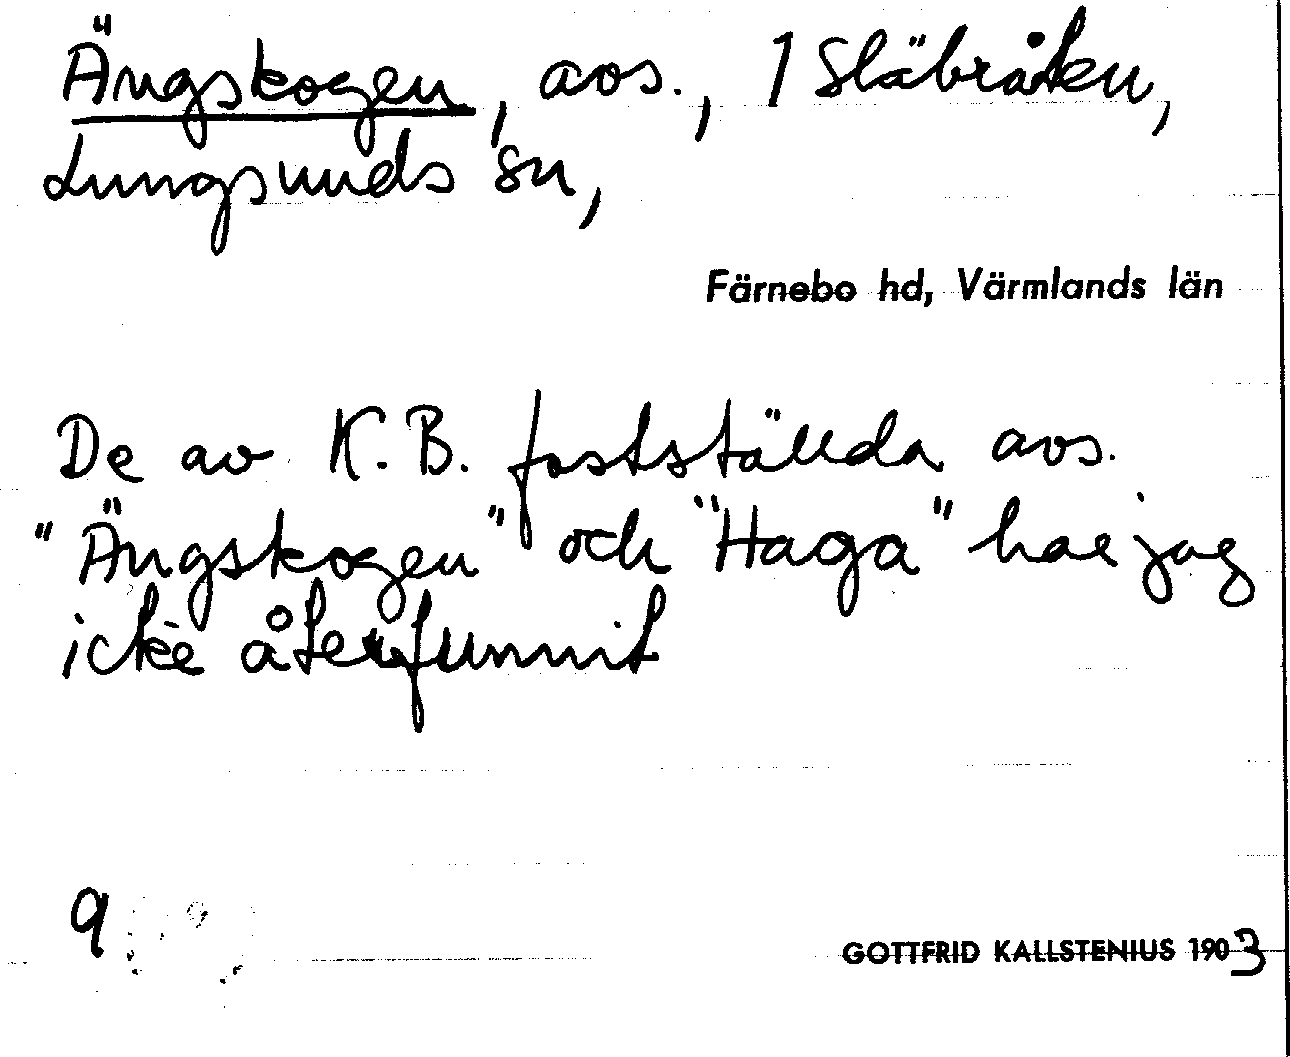 Ängskogen, avs., 1 Släbråten,
Lungsunds sn,
Färnebo hd, Värmlands län
De av K.B. fastställda avs.
"Ängskogen" och "Haga" har jag
icke återfunnit
9
GOTTFRID KALLSTENIUS 1903